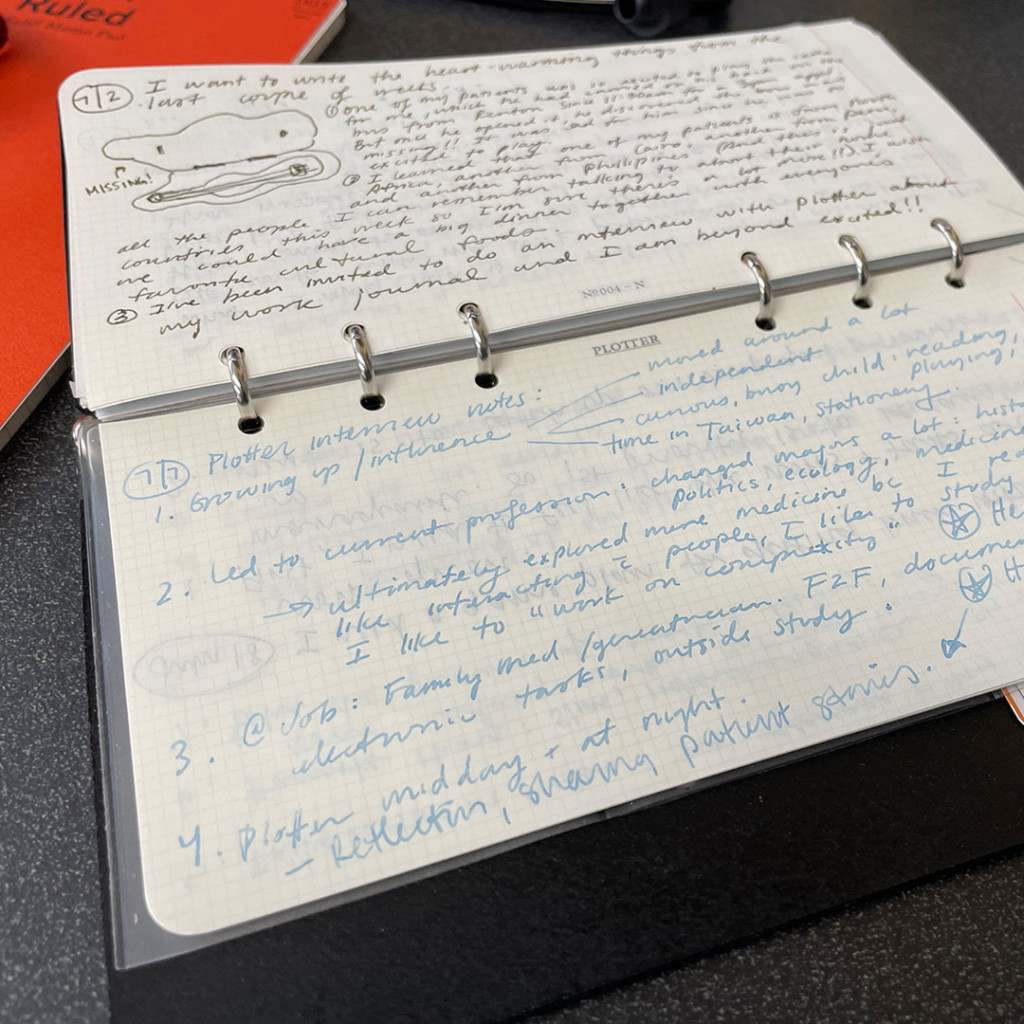 Ruled
Refill Memo Pad
7/2 I want to write the heart-warming things from the
last couple of weeks.
① one of my patients was so excited to play the
for me, which he had carried on his back on the
bus from Renton since 11:30am for the 3pm appt.
But once he opened it, he discovered the bow was
missing!! It was sad for him since he was so
excited to play.
MISSING!
② I learned that one of my patients is from
Africa, another from Cairo, another from
and another from Phillipines. (And this is
all the people I can remember talking to about their home
countries this week so I'm sure there's a lot more!!). I wish
we could have a big dinner together with everyone's
favorite cultural foods.
③ I've been invited to do an interview with Plotter about
my work journal and I am beyond excited!!
Nº004 - N
PLOTTER
7/7 Plotter interview notes:
1. Growing up / influence
moved around a lot
independent
curious, busy child: reading,
playing,
time in Taiwan, stationery.
2. Led to current profession: changed majors a lot:
politics, ecology,
→ ultimately explored more medicine bc I
like interacting c people, I like to study
I like to "work on complexity"
3. @ Job: Family med / geriatrician. F2F,
electronic tasks, outside study.
4. Plotter midday + at night.
- Reflection, sharing patient stories.